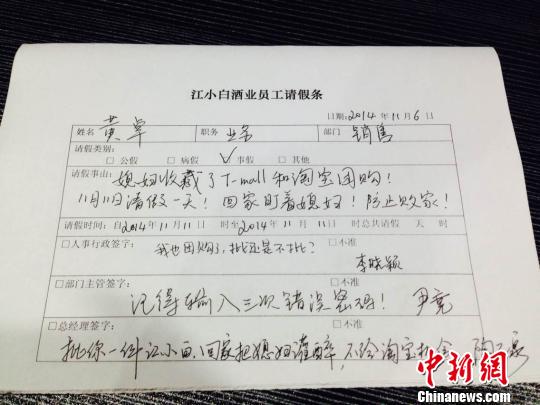 江小白酒业员工请假条
日期:2014年11月6日
姓名 黄卓 职务 业务 部门 销售
请假类别:
□公假 □病假 ✓事假 □其他
请假事由: 媳妇收藏了T-mall和淘宝团购!
11月11日请假一天!回家盯着媳妇!防止败家!
请假时间:自2014年11月11日 时至2014年11月11日 时总共请假 天 时
□人事行政签字: □不准
我也团购了,批还是不批?
李晓颖
□部门主管签字: □不准
记得输入三次错误密码! 尹亮
□总经理签字: □不准
批你一件江小白,回家把媳妇灌醉,不给淘宝机会
中新网
www.chinanews.com